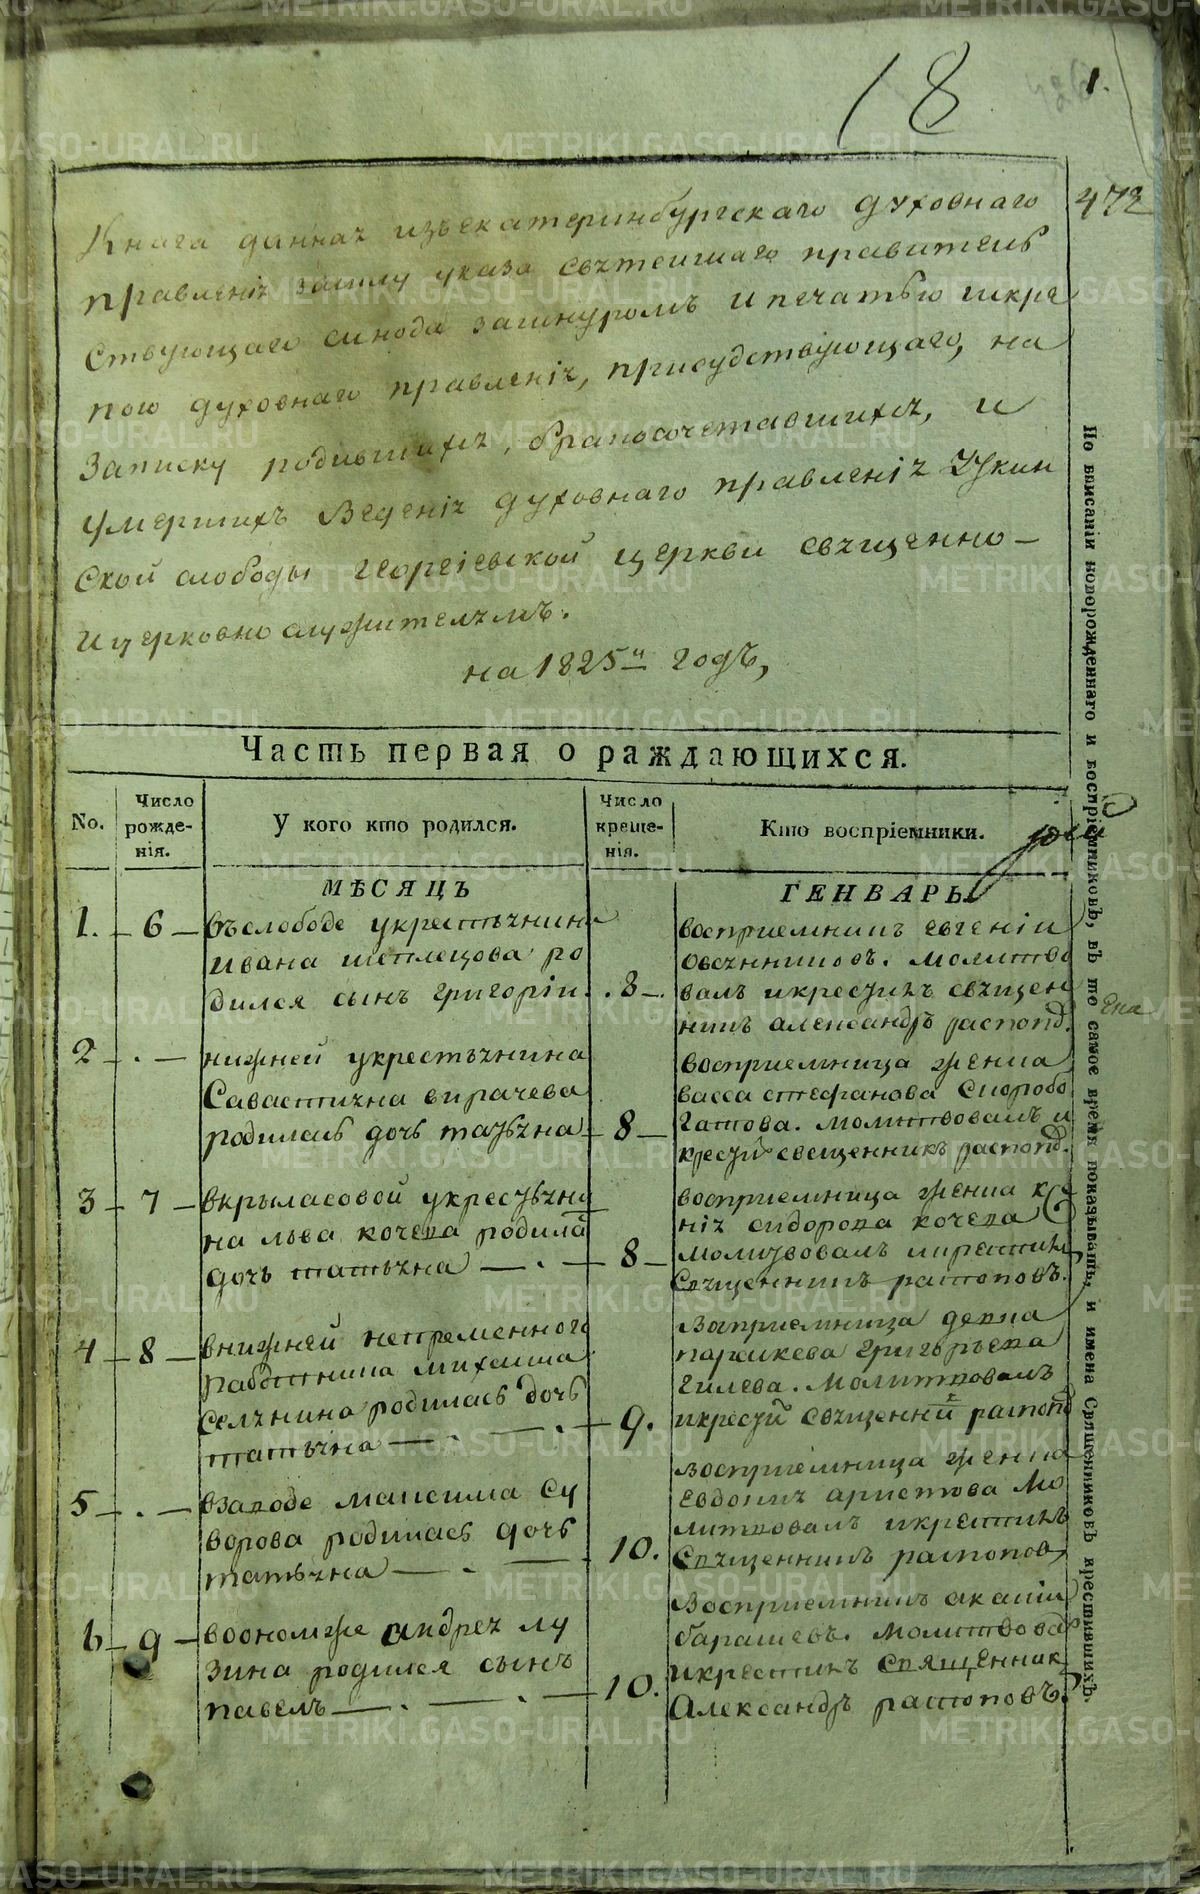 18
1.
472
Книга даннаѧ изъекатеринбургскаго духовнаго
правленіѧ всилу указа свѧтеишаго правитель
ствующаго синода зашнуромъ и печатью искре
пою духовнаго правленіѧ, присудствующаго, на
записку родившихсѧ, бракосочетавшихсѧ, и
умершихъ Веденіѧ духовнаго правленіѧ
ской слободы георгіевской церкви свѧщенно-
и церковно служителѧмъ.
на 1825й годъ,
Часть первая о раждающихся.
No.
Число рожде-нія.
У кого кто родился.
Число креще-нія.
Кто воспріемники.
МѢСЯЦЪ
ГЕНВАРЬ.
1. 6 въслободе укрестьѧнина
Ивана шеплецова ро
дился сынъ григоріи. 8
восприемникъ евгеніи
овчинниковъ. молитво
валъ икрестилъ свѧщен
никъ александръ распоп.
2 нижней укрестьѧнина
Савастиѧна вирачева
родилась дочь татьѧна 8
восприемница женка
васса стефанова Скоробо
гатова. молитвовалъ и
крести свещенникъ распоп.
3 7 вкрыласовой укрестьѧни
на льва кочева родила
дочь татьѧна 8
восприемница женка кс
ніѧ сидорова кочева
молитвовалъ икрестилъ
Свѧщенникъ распоповъ.
4 8 внижней непременного
работника михаила
Селѧнина родилась дочь
татьѧна 9.
Восприемница девка
параскева григорьева
гилева. Молитвовалъ
икрести свѧщенникъ распоп
5 взаводе максима Су
ворова родилась дочь
татьѧна 10.
Восприемница женка
Евдокиѧ аристова Мо
литвовалъ икрестилъ
Свѧщенникъ распопов
6 9 андреѧ лу
зина родился сынъ
павелъ 10.
Восприемникъ акакіи
барашевъ. молитвова
икрестилъ священник
Александръ распоповъ.
По вписаніи новорожденнаго и воспріемниковъ, въ то самое время показывать, и имена Священниковъ крестившихъ.
METRIKI.GASO-URAL.RU